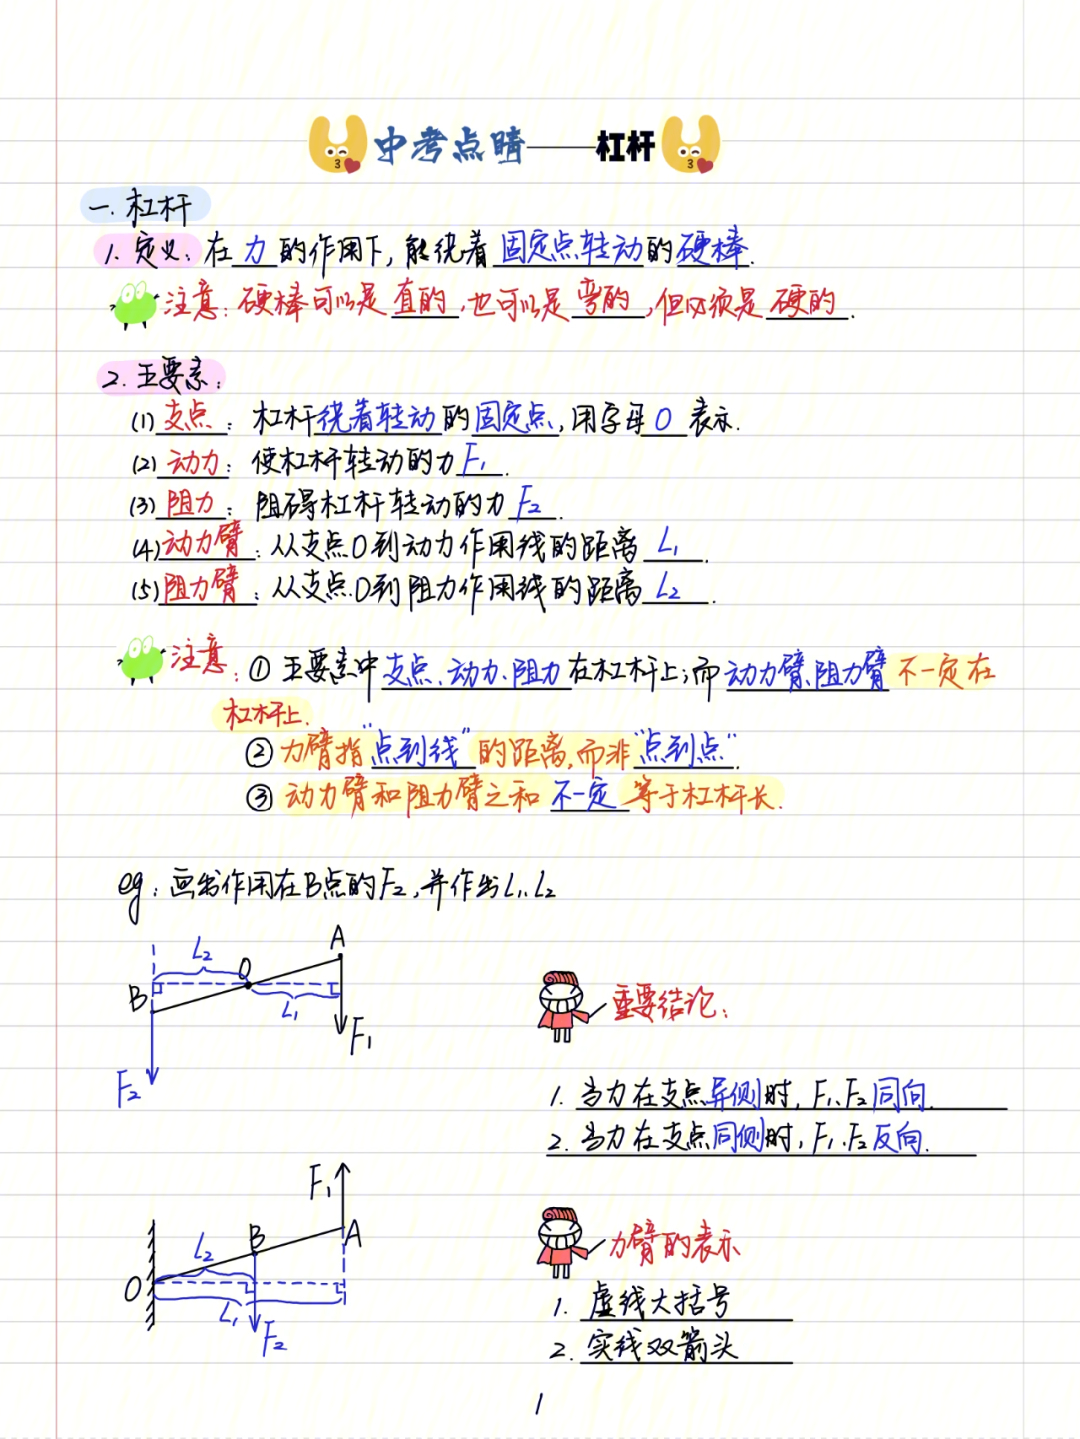 中考点睛——杠杆
一. 杠杆
1. 定义: 在力的作用下, 能绕着固定点转动的硬棒.
注意: 硬棒可以是直的, 也可以是弯的, 但必须是硬的.
2. 主要素:
(1) 支点: 杠杆绕着转动的固定点, 用字母O表示.
(2) 动力: 使杠杆转动的力F₁.
(3) 阻力: 阻碍杠杆转动的力F₂.
(4) 动力臂: 从支点O到动力作用线的距离L₁.
(5) 阻力臂: 从支点O到阻力作用线的距离L₂.
注意: ① 主要素中支点、动力、阻力在杠杆上; 而动力臂、阻力臂不一定在
杠杆上.
② 力臂指“点到线”的距离, 而非“点到点”.
③ 动力臂和阻力臂之和不一定等于杠杆长.
eg: 画出作用在B点的F₂, 并作出L₁、L₂
A
L₂
O
B
L₁
F₁
F₂
重要结论:
1. 当力在支点异侧时, F₁、F₂同向.
2. 当力在支点同侧时, F₁、F₂反向.
F₁
B
A
L₂
O
L₁
F₂
力臂的表示
1. 虚线大括号
2. 实线双箭头
1